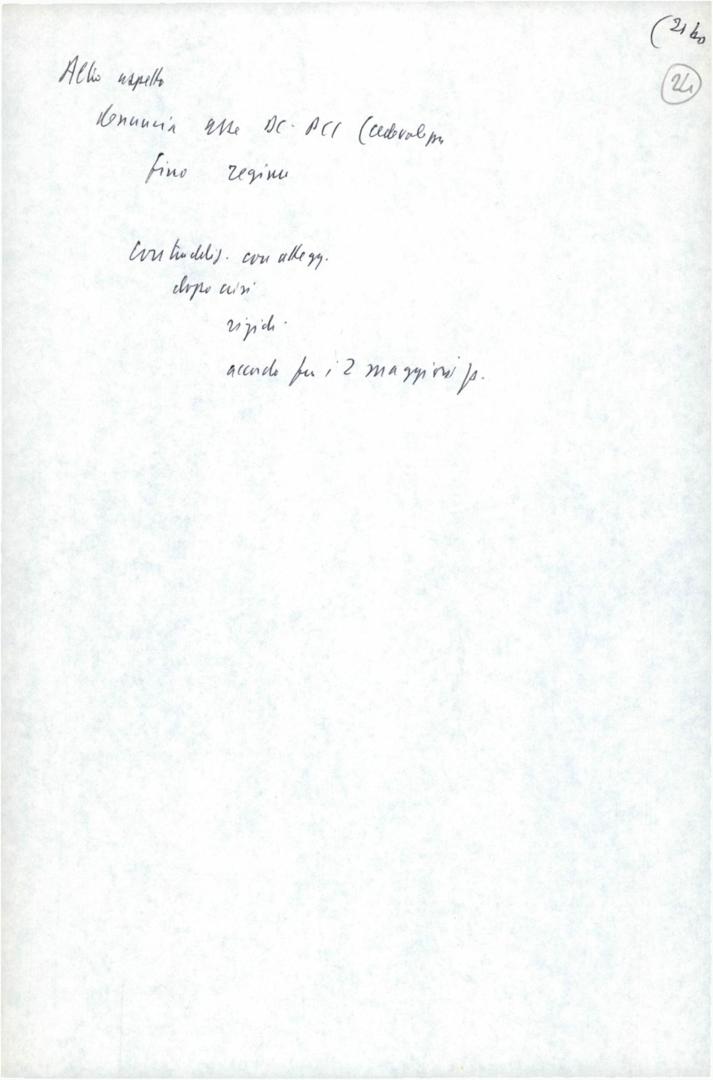 24
Altro aspetto
denuncia asse DC-PCI
fino regime
con attegg.
dopo crisi
rigidi.
accordo fra i 2 maggiori p.